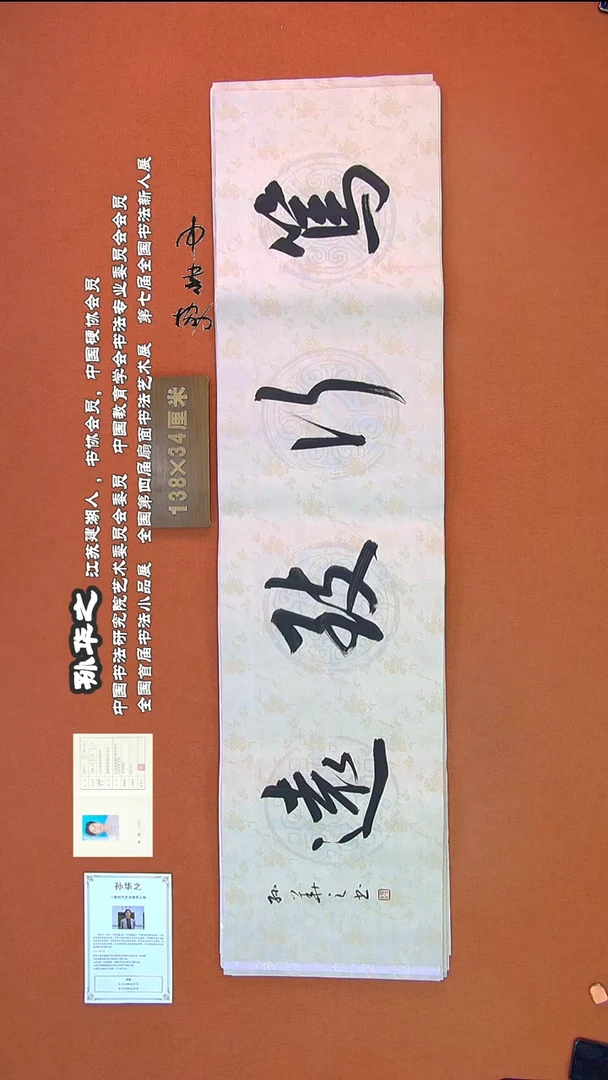 孙华之
江苏建湖人，书协会员，中国硬协会员
中国书法研究院艺术委员会委员 中国教育学会书法专业委员会会员
全国首届书法小品展 全国第四届扇面书法艺术展 第七届全国书法新人展
138×34厘米
篤行致遠
孙華之书
孙华之